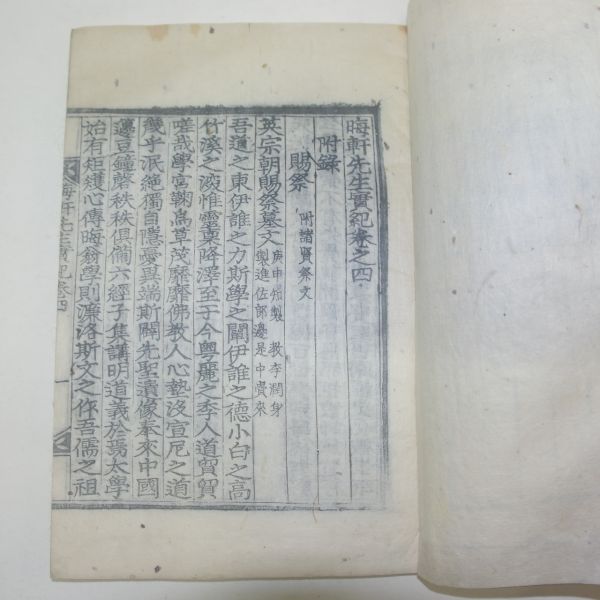 晦軒先生實紀卷之四
附錄
賜祭 附諸賢祭文
英宗朝賜祭墓文 庚申知製 教李潤身
製進佐郞邊是中賫來
吾道之東伊誰之力斯學之闡伊誰之德小白之高
竹溪之液惟靈稟降澤至于今粤麗之季人道貿貿
嗟哉學宮鞠爲草茂靡靡佛敎人心墊沒宣尼之道
幾乎泯絶獨自隱憂異端斯闢先聖遺像奉來中國
籩豆鐘磬秩秩俱備六經子集講明道義於焉太學
始有矩矱心傳晦翁學則濂洛斯文之作吾儒之祖
晦軒先生實紀卷四
一